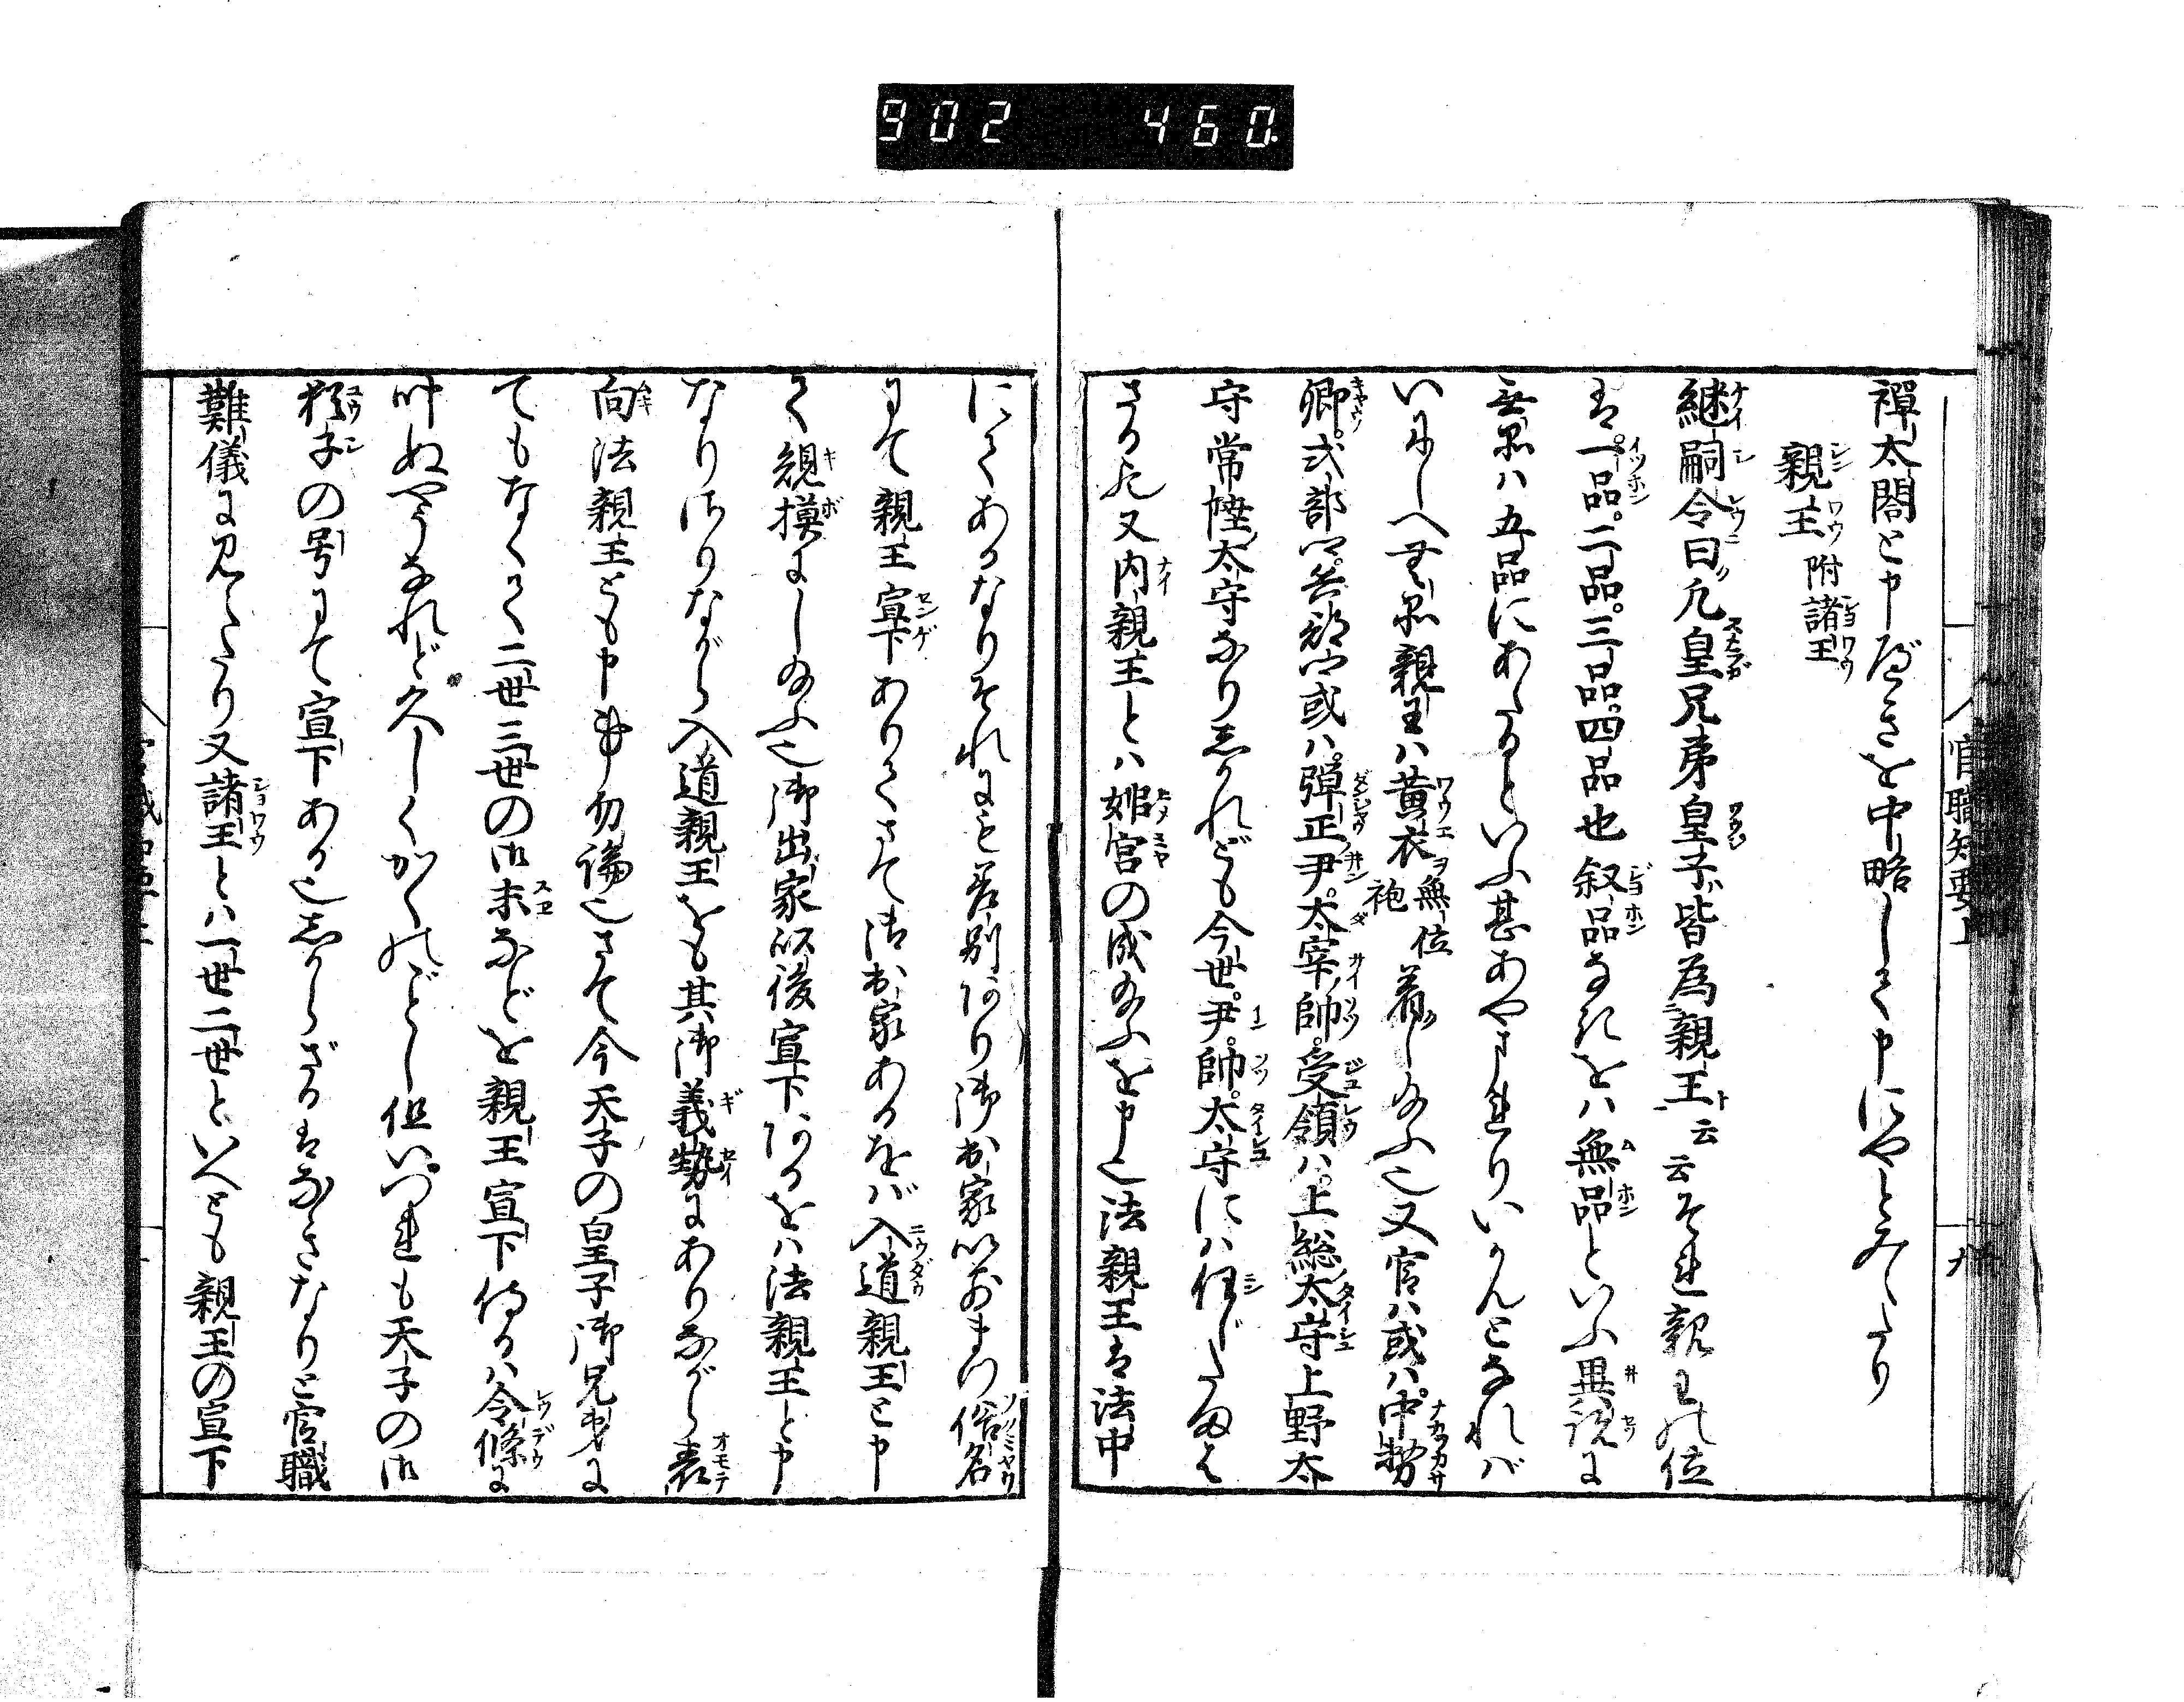 902 460.
官職知要上
禅太閤と申べきを中略して申にやとみへたり
親王 附諸王
継嗣令曰凡皇兄弟皇子皆為親王云云それ親王の位
は一品。二品。三品。四品也叙品なきをハ無品といふ異説に
無品ハ五品にあたるといふ甚あやまれりいかんとなれバ
いにしへ無品親王ハ黄衣無位袍着し給ふ也又官ハ或ハ中務
卿。式部卿。兵部卿或ハ。弾正尹。太宰帥。受領ハ。上総太守上野太
守常陸太守なりしかれども今世。尹。帥。太守にハ任じたまは
さる也又内親王とハ姫宮の成給ふを申也法親王は法中
にてあるなりそれにも差別あり御出家以前まづ俗名
にて親王宣下ありてさて御出家あるをバ入道親王と申
て規模にし給ふ也御出家以後宣下あるをハ法親王と申
なりさりながら入道親王をも其御義勢にありながら表
向法親王とも申事勿論也さて今天子の皇子御兄弟に
てもなくて二世三世の御末などを親王宣下侍るハ令條に
叶ぬやうなれど久しくかくのごとし但いづれも天子の御
猶子の号にて宣下ある也しからざるはなきなりと官職
難儀に見へたり又諸王とハ一世二世といへとも親王の宣下